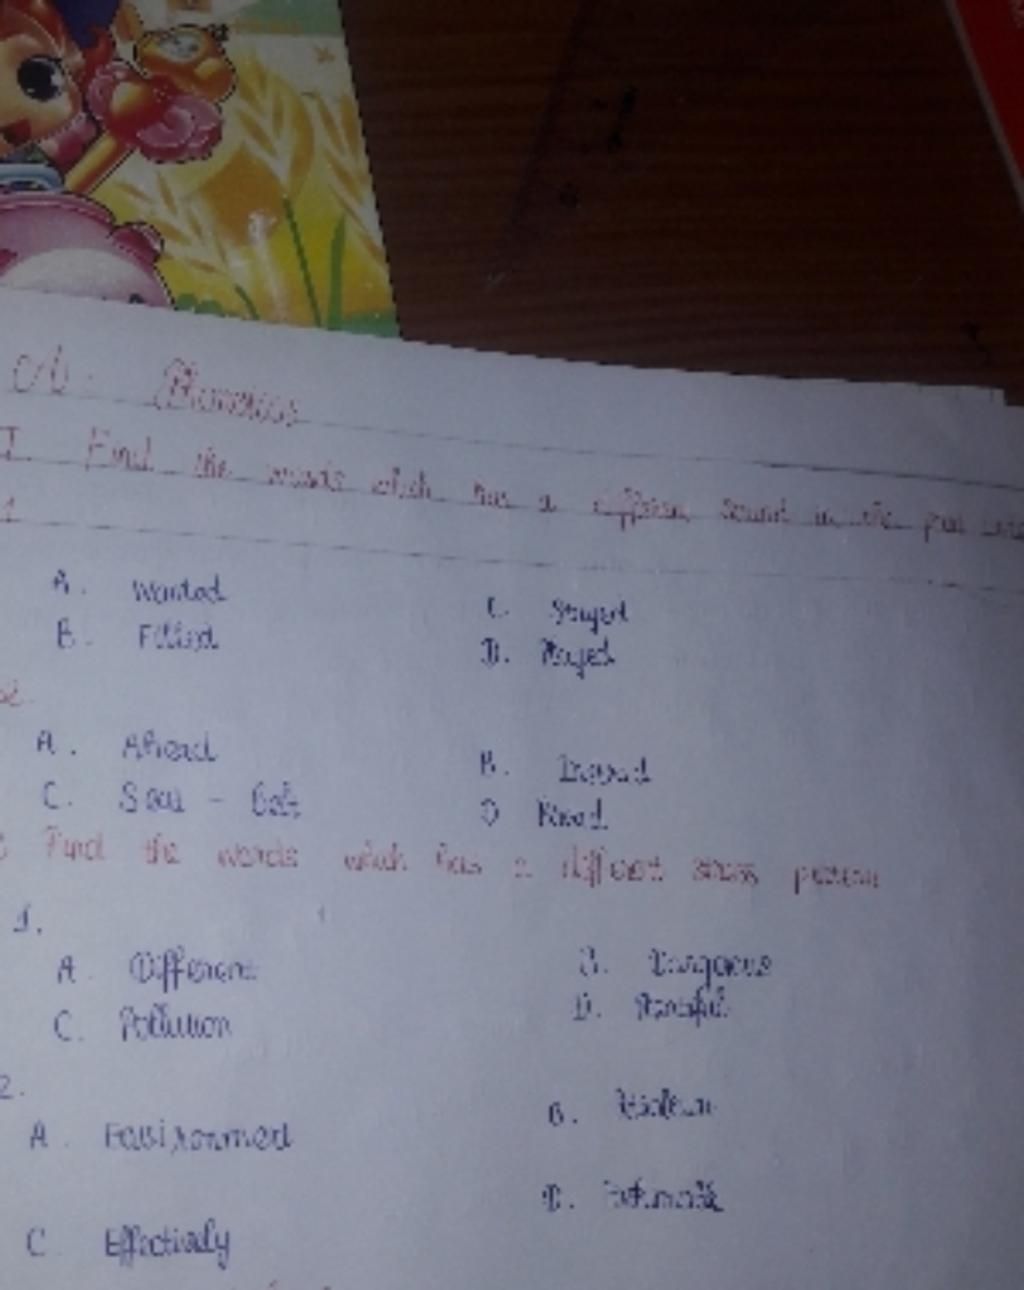 I. Find the words which has a different sound in the
1
A. Wanted C. Stayed
B. Filled D. Played
2.
A. Ahead B.
C. Seat - Belt D
Find the words which has a different stress pattern
1.
A. Different B. Dangerous
C. Pollution D.
2.
A. Environment B.
C. Effectively D.